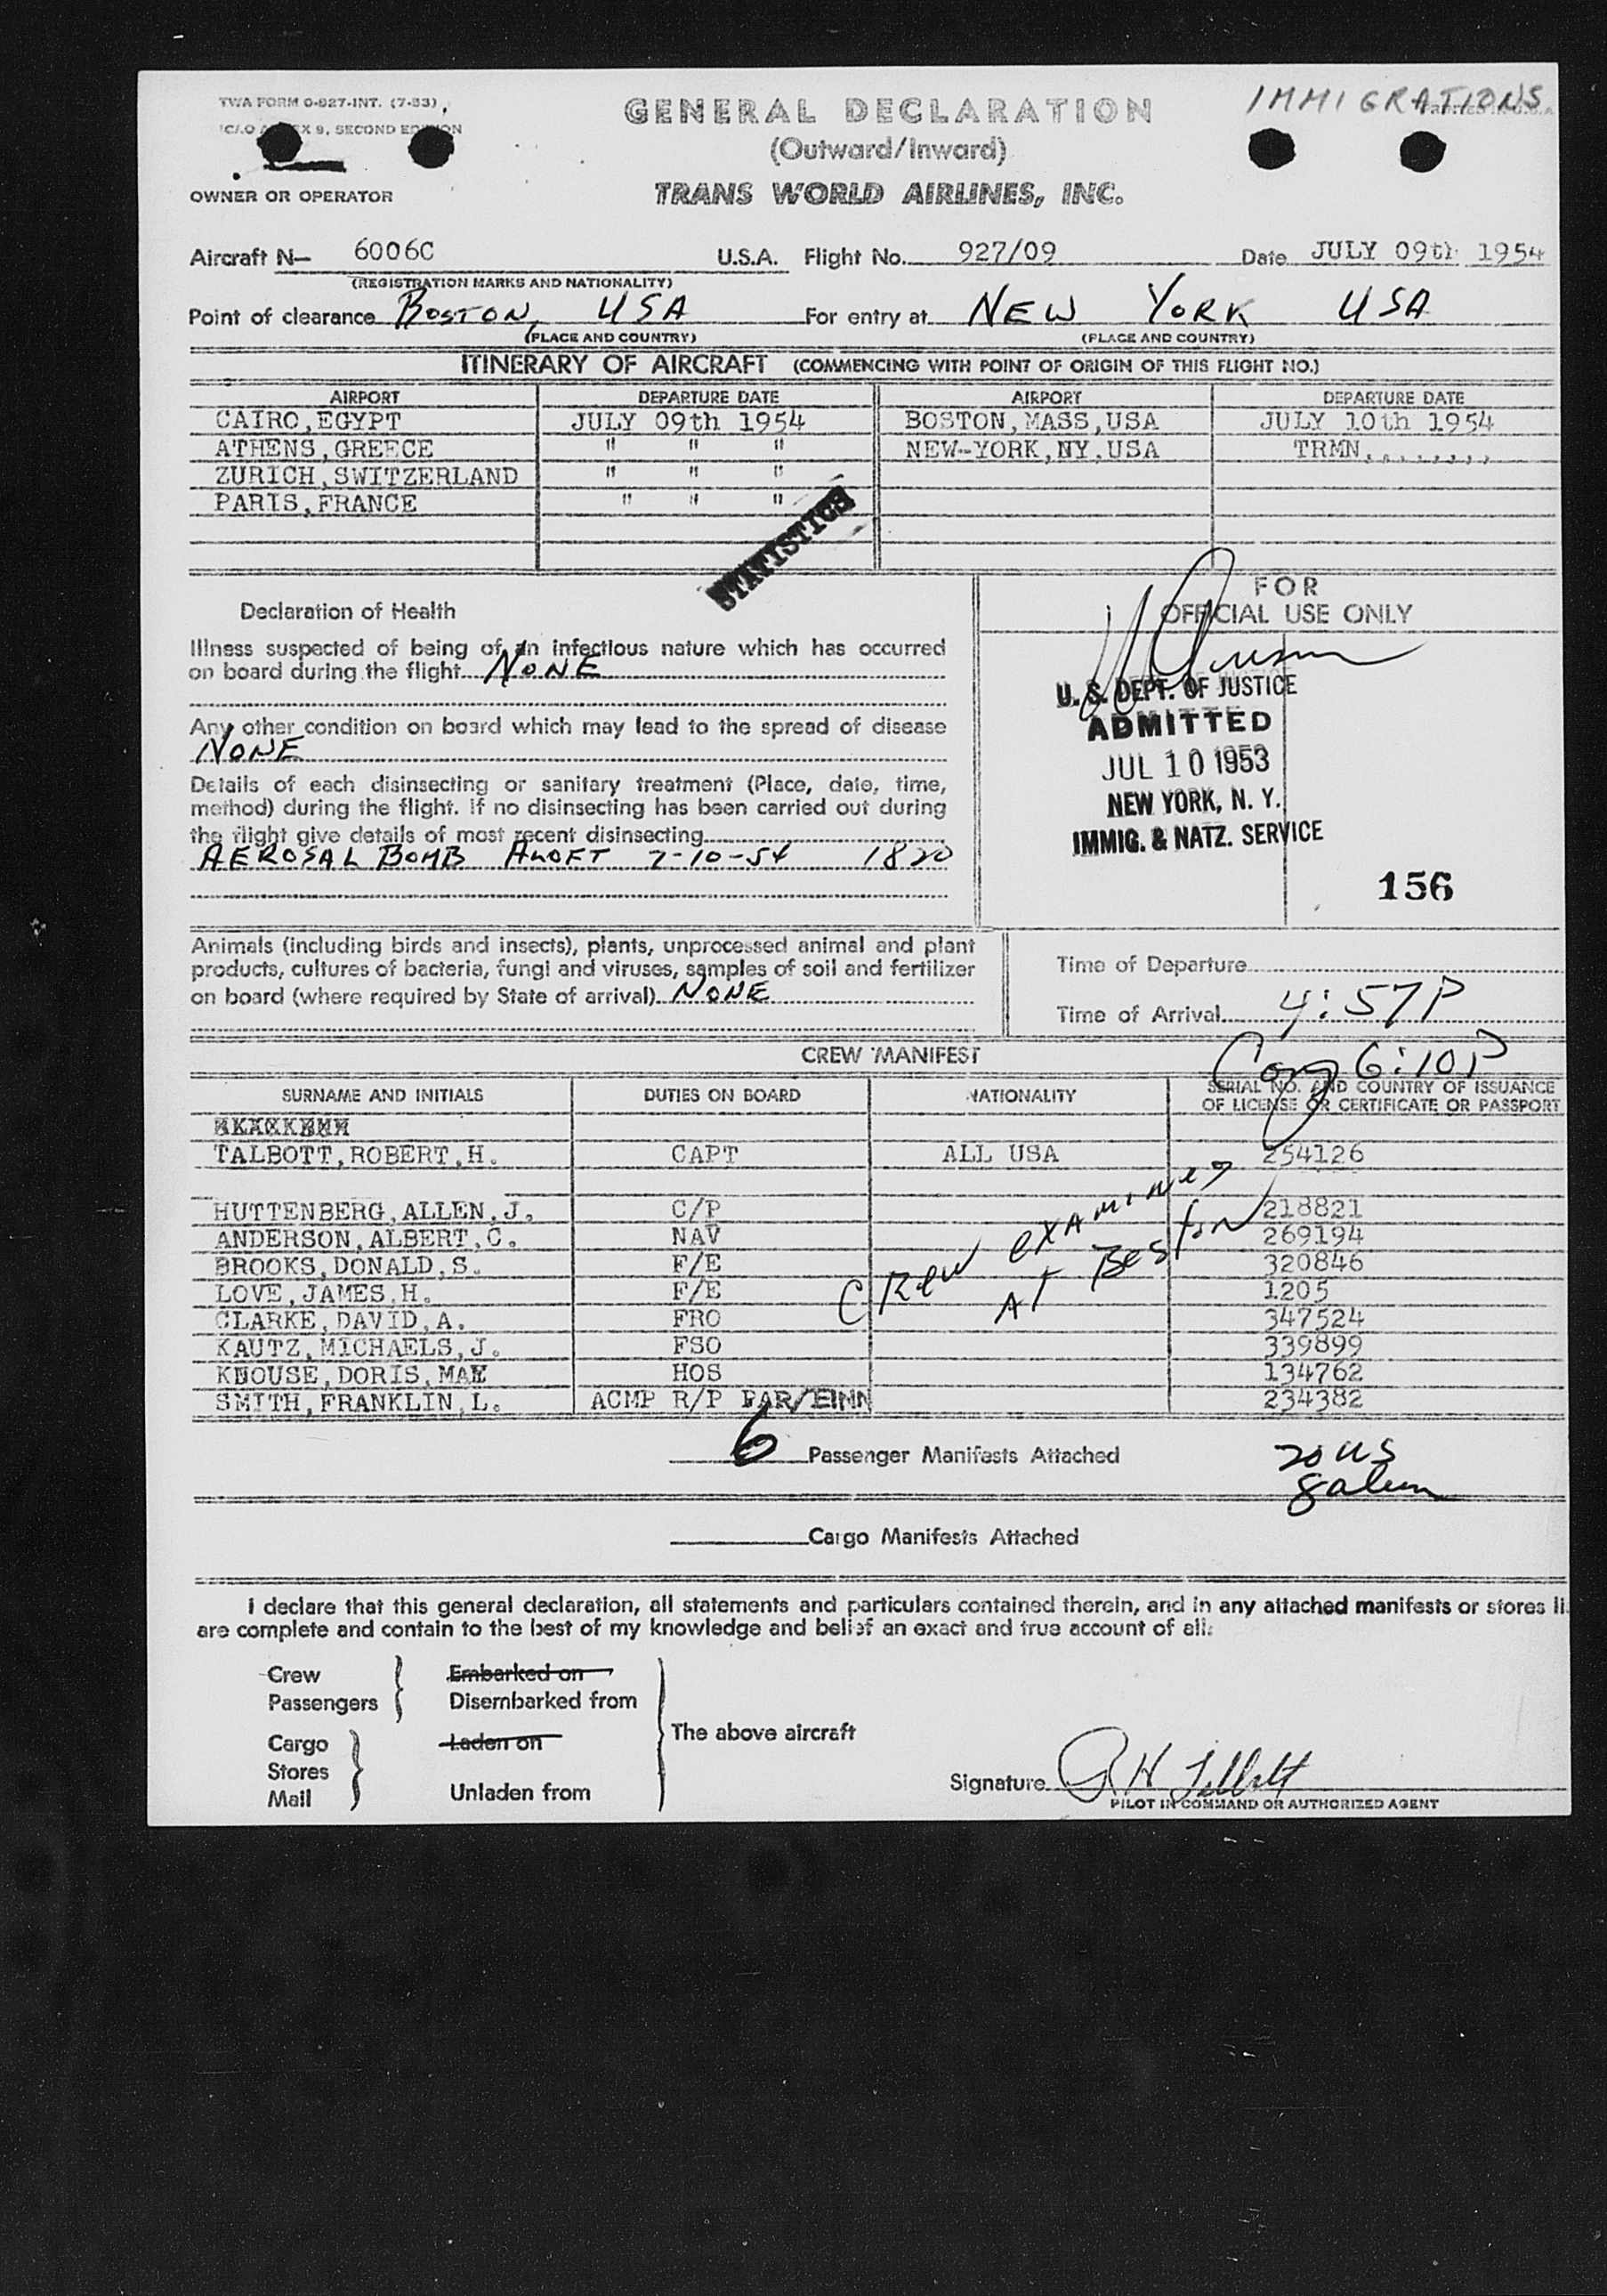 TWA FORM O-927-INT. (7-53)
SECOND EDITION
IMMIGRATIONS
GENERAL DECLARATION
(Outward/Inward)
TRANS WORLD AIRLINES, INC.
OWNER OR OPERATOR
Aircraft N— 6006C U.S.A. Flight No. 927/09 Date JULY 09th 1954
(REGISTRATION MARKS AND NATIONALITY)
Point of clearance BOSTON, USA For entry at NEW YORK USA
(PLACE AND COUNTRY) (PLACE AND COUNTRY)
ITINERARY OF AIRCRAFT (COMMENCING WITH POINT OF ORIGIN OF THIS FLIGHT NO.)
AIRPORT DEPARTURE DATE AIRPORT DEPARTURE DATE
CAIRO,EGYPT JULY 09th 1954 BOSTON,MASS,USA JULY 10th 1954
ATHENS,GREECE " " " NEW-YORK,NY,USA TRMN,,,,,,,,
ZURICH,SWITZERLAND " " "
PARIS,FRANCE " " "
STATISTICS
FOR
OFFICIAL USE ONLY
Declaration of Health
Illness suspected of being of an infectious nature which has occurred
on board during the flight NONE
Any other condition on board which may lead to the spread of disease
NONE
Details of each disinsecting or sanitary treatment (Place, date, time,
method) during the flight. If no disinsecting has been carried out during
the flight give details of most recent disinsecting
AEROSAL BOMB ALOFT 7-10-54 1820
U. S. DEPT. OF JUSTICE
ADMITTED
JUL 10 1953
NEW YORK, N. Y.
IMMIG. & NATZ. SERVICE
156
Animals (including birds and insects), plants, unprocessed animal and plant
products, cultures of bacteria, fungi and viruses, samples of soil and fertilizer
on board (where required by State of arrival) NONE
Time of Departure
Time of Arrival 4:57P
6:10P
CREW MANIFEST
SURNAME AND INITIALS DUTIES ON BOARD NATIONALITY SERIAL NO. AND COUNTRY OF ISSUANCE OF LICENSE OR CERTIFICATE OR PASSPORT
TALBOTT,ROBERT,H. CAPT ALL USA 254126
HUTTENBERG,ALLEN,J. C/P 218821
ANDERSON,ALBERT,C. NAV 269194
BROOKS,DONALD,S. F/E 320846
LOVE,JAMES,H. F/E 1205
CLARKE,DAVID,A. FRO 347524
KAUTZ,MICHAELS,J. FSO 339899
KNOUSE,DORIS,MAE HOS 134762
SMITH,FRANKLIN,L. ACMP R/P PAR/EINN 234382
CRew exAmined
AT Boston
6 Passenger Manifests Attached
20 US
Cargo Manifests Attached
I declare that this general declaration, all statements and particulars contained therein, and in any attached manifests or stores li
are complete and contain to the best of my knowledge and belief an exact and true account of all:
Crew Embarked on
Passengers Disembarked from
The above aircraft
Cargo Laden on
Stores
Mail Unladen from
Signature R H Talbott
PILOT IN COMMAND OR AUTHORIZED AGENT